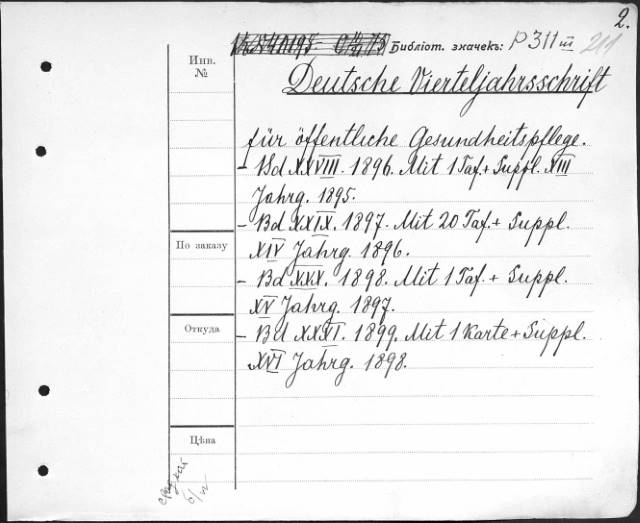 2.
Библіот. значекъ: P 311 III 211
Инв.
№
Deutsche Vierteljahrsschrift
für öffentliche Gesundheitspflege.
- Bd XXVIII. 1896. Mit 1 Taf. + Suppl. XIII
Jahrg. 1895.
- Bd XXIX. 1897. Mit 20 Taf. + Suppl.
По заказу
XIV Jahrg. 1896.
- Bd XXX. 1898. Mit 1 Taf. + Suppl.
XV Jahrg. 1897.
Откуда
- Bd XXXI. 1899. Mit 1 Karte + Suppl.
XVI Jahrg. 1898.
Цѣна